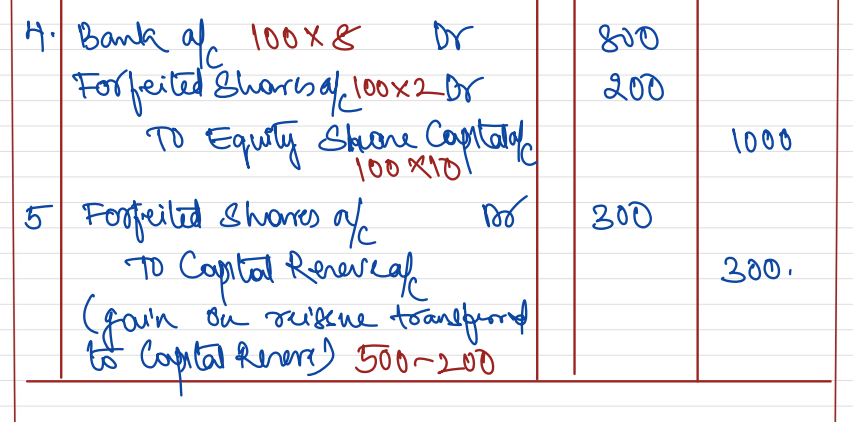 4. Bank a/c 100×8 Dr 800
Forfeited Shares a/c 100×2 Dr 200
To Equity Share Capital a/c 1000
100×10
5 Forfeited Shares a/c Dr 300
To Capital Reserve a/c 300.
(gain on reissue transferred
to Capital Reserve) 500-200